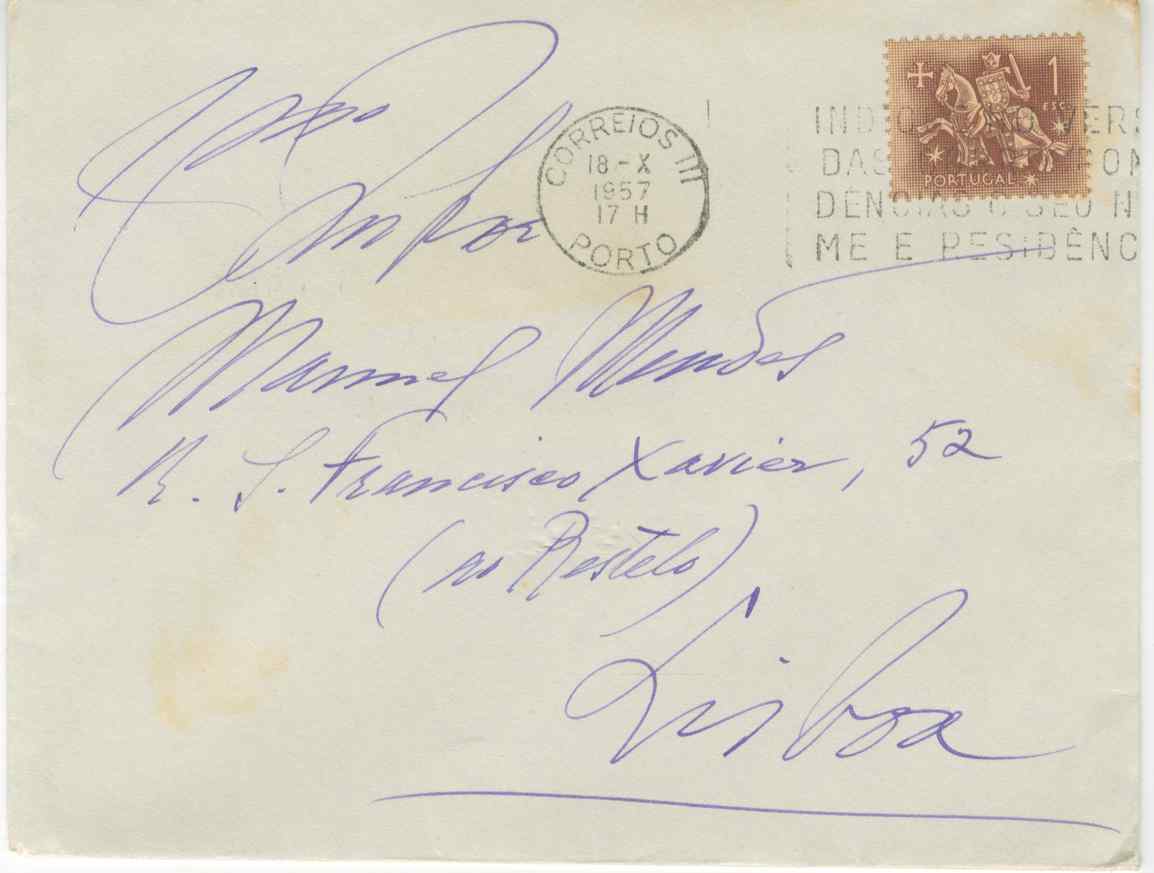 CORREIOS III
18-X
1957
17 H
PORTO
1
ESC.
PORTUGAL
INDIC NO VERS
DAS
DÊNCIAS O SEU N
ME E RESIDÊNC
Manuel Mendes
R. S. Francisco Xavier, 52
(ao Restelo)
Lisboa